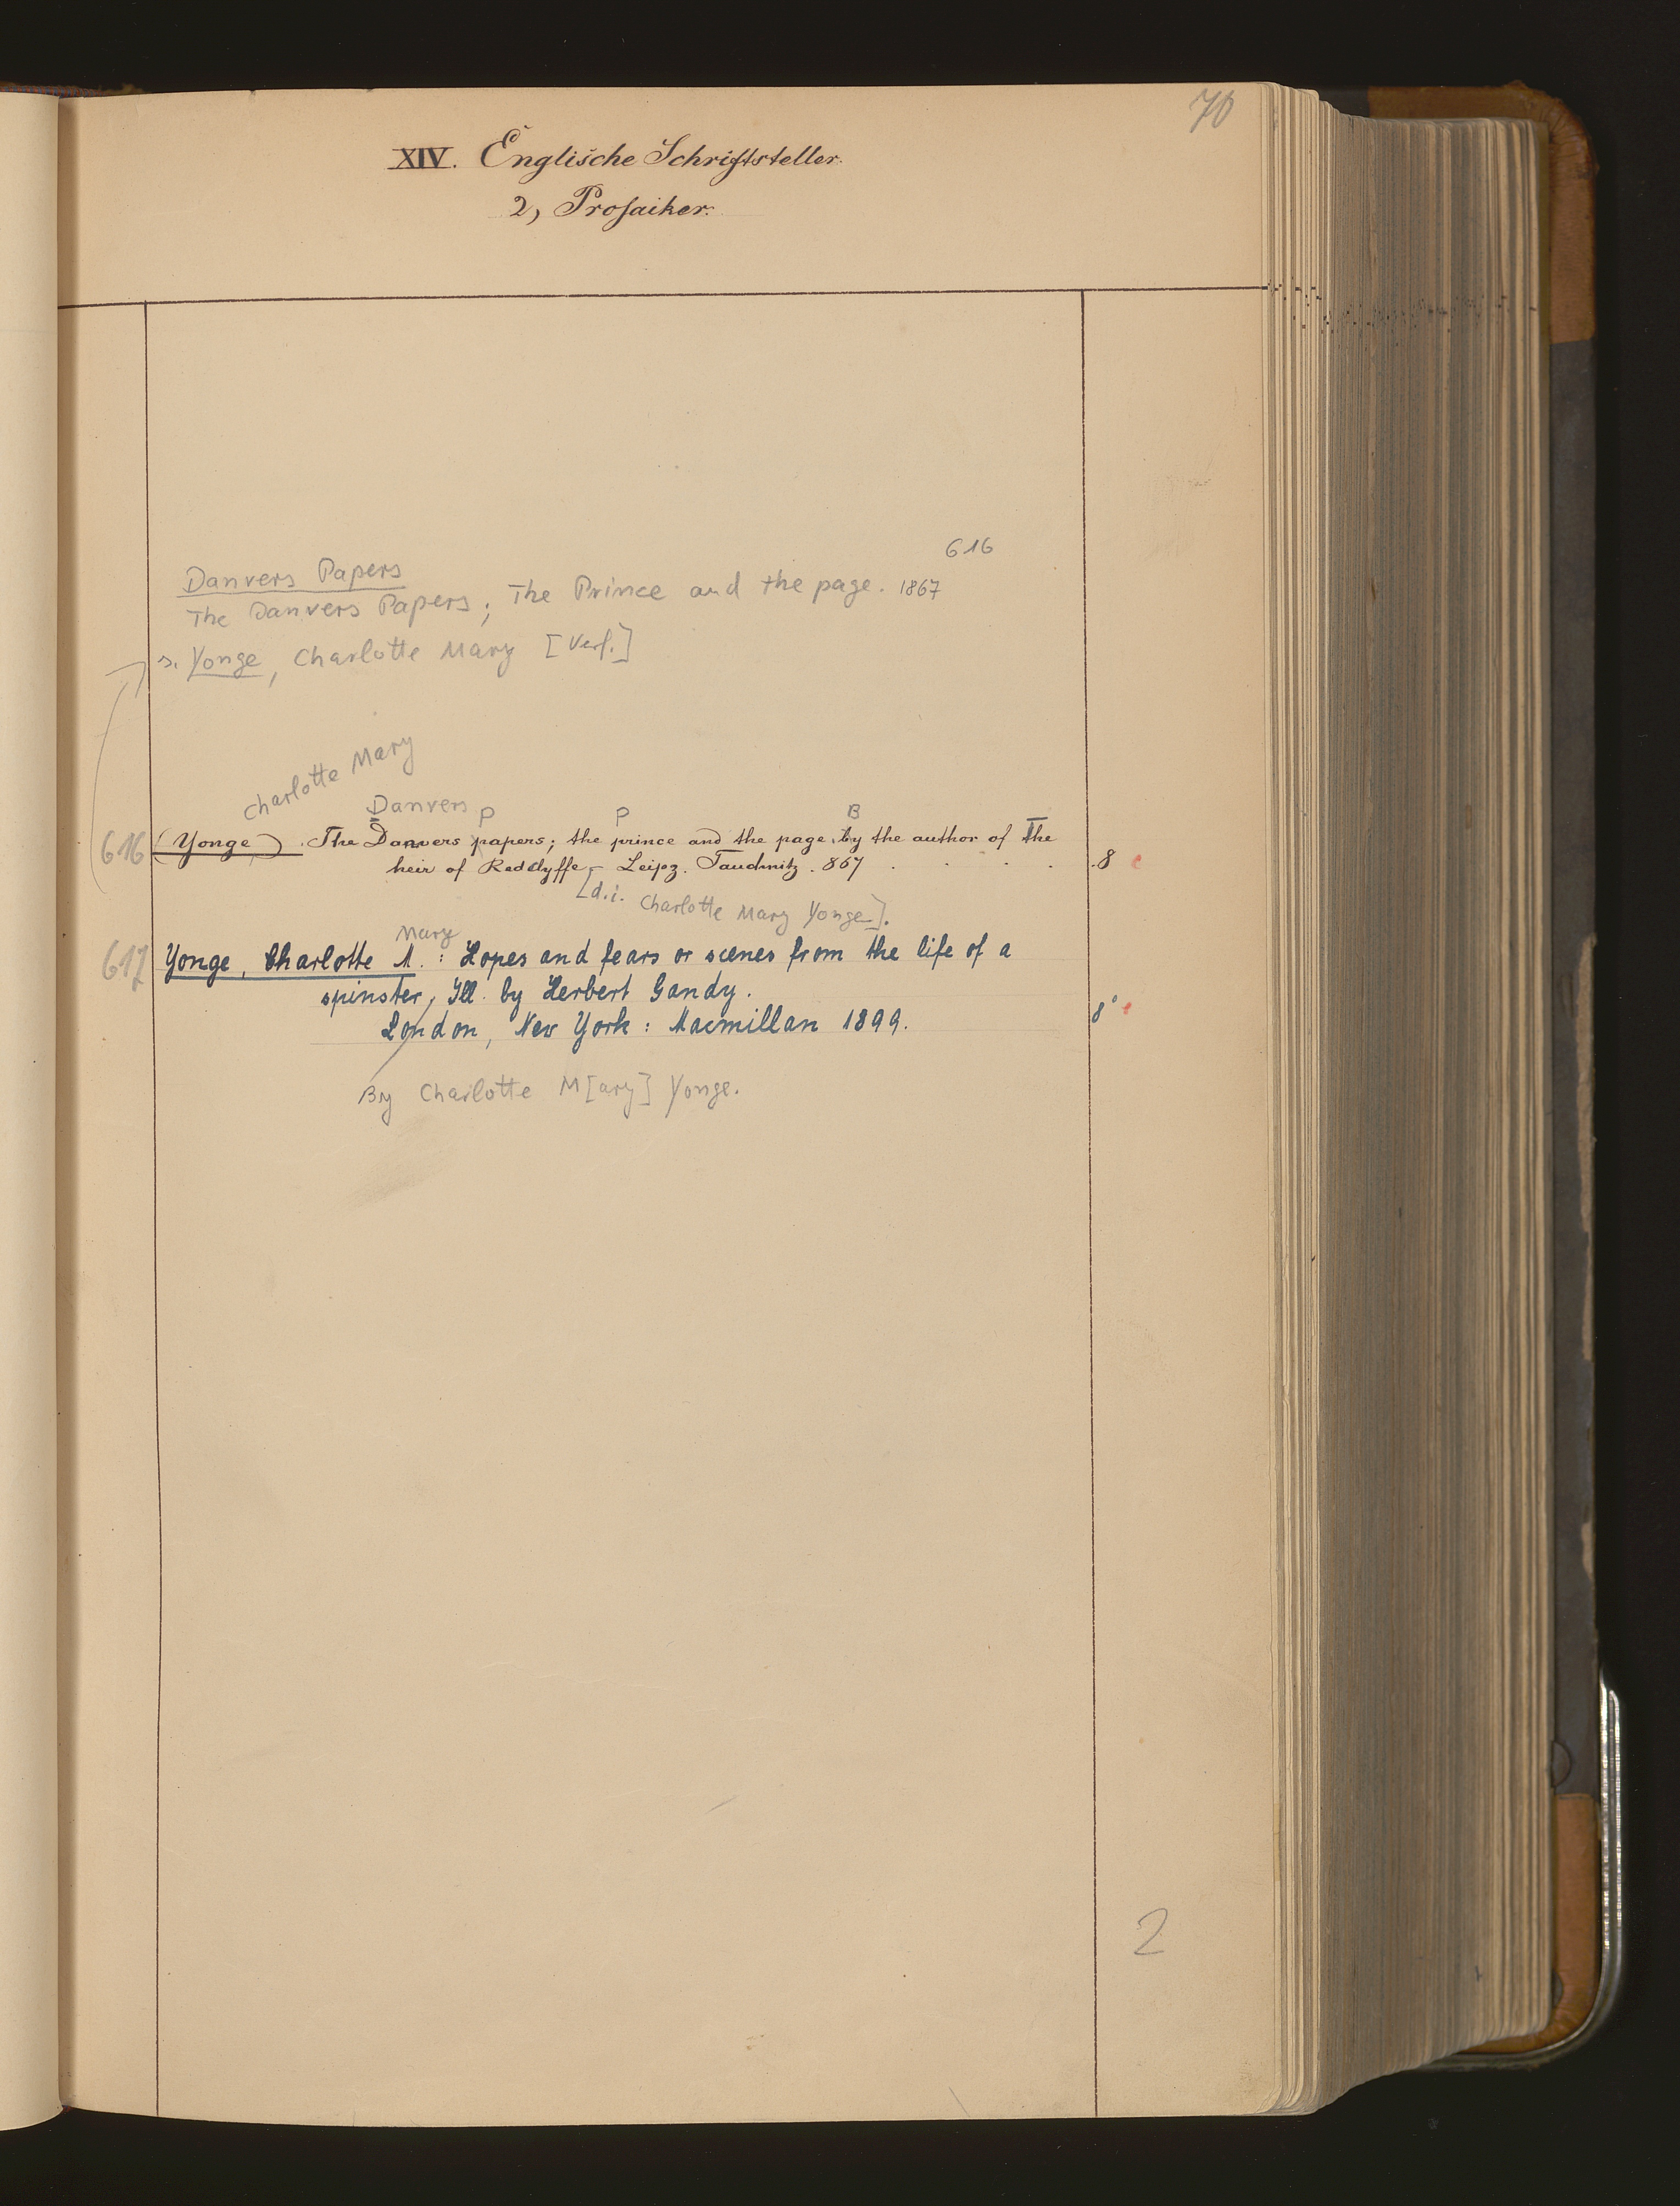 70
XIV. Englische Schriftsteller.
2, Prosaiker.
616
Danvers Papers
The Danvers Papers; The Prince and the page. 1867
s. Yonge, Charlotte Mary [Verf.]
Charlotte Mary
Danvers P P B
616 (Yonge). The Danvers papers; the prince and the page, by the author of The
heir of Redclyffe – Leipz. Tauchnitz. 867 . . . . . 8 c
[d.i. Charlotte Mary Yonge].
Mary
617 Yonge, Charlotte M.: Hopes and fears or scenes from the life of a
spinster, Ill. by Herbert Gandy.
London, New York: Macmillan 1899. 8° c
By Charlotte M[ary] Yonge.
2